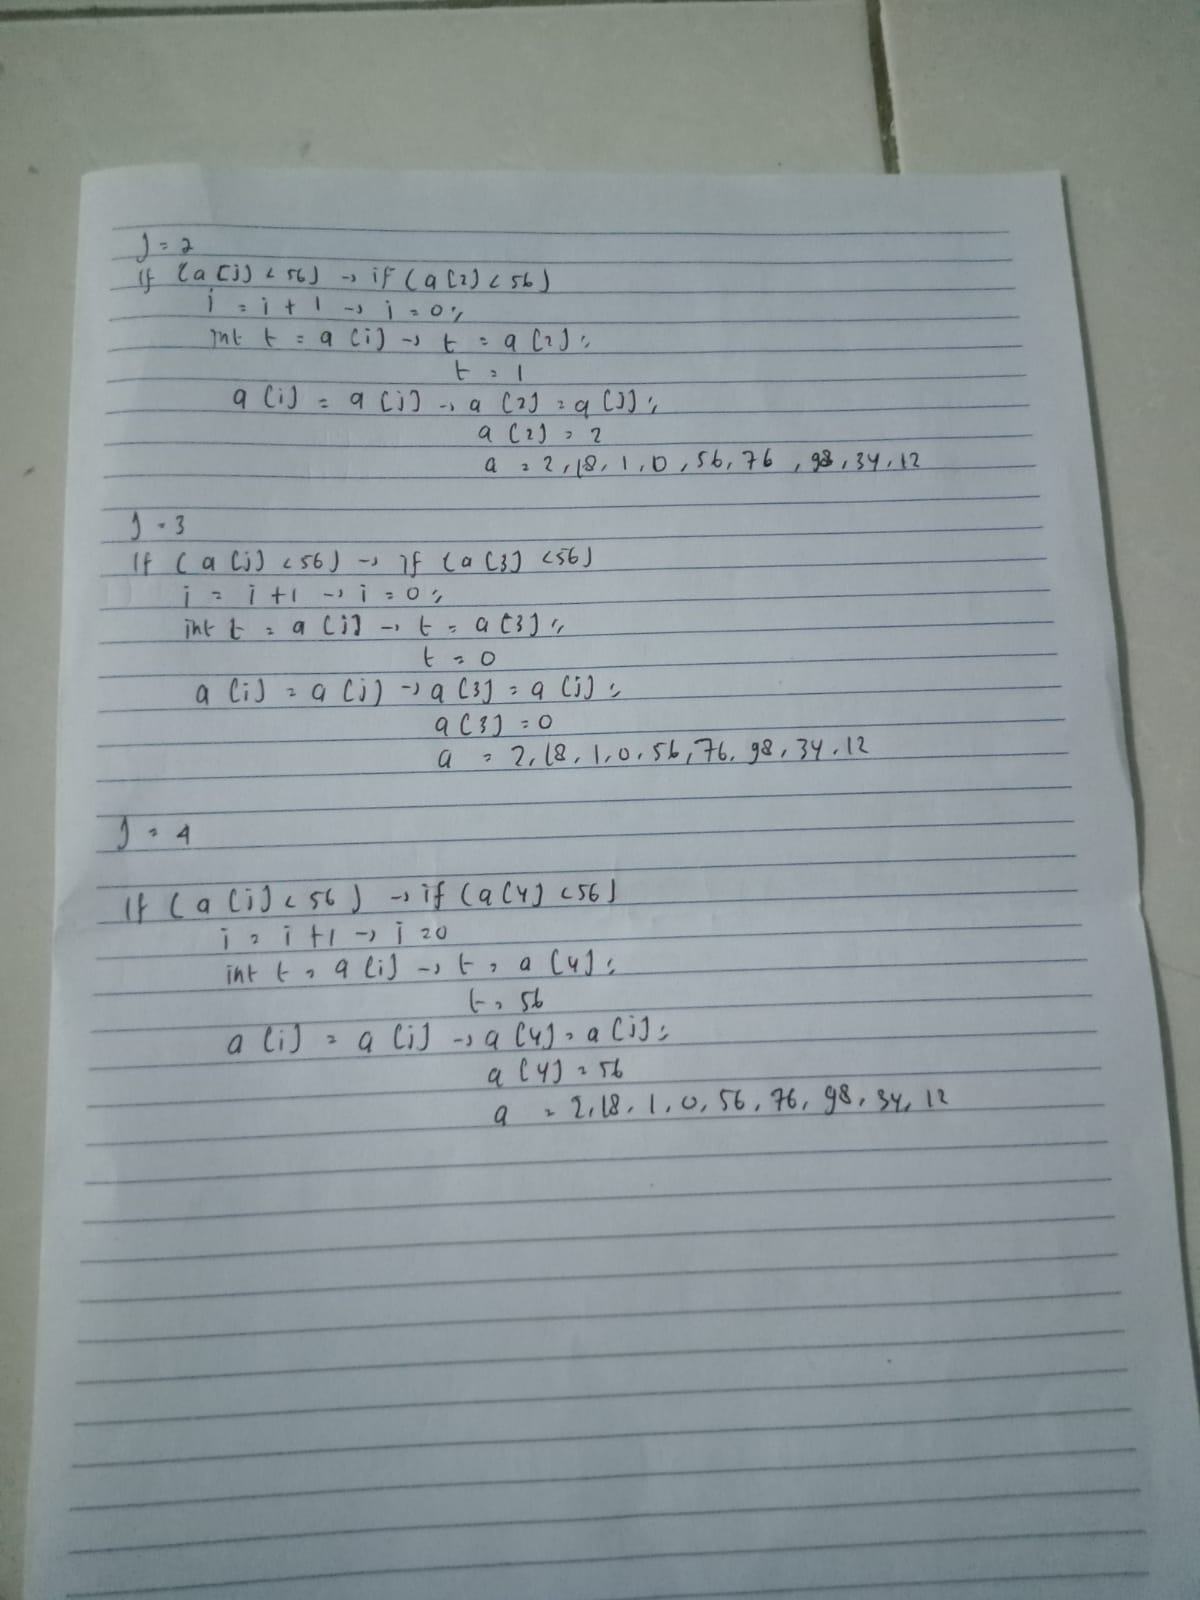 J = 2
If (a[j] < 56) → if (a[2] < 56)
i = i + 1 → i = 0;
int t = a[i] → t = a[2];
t = 1
a[i] = a[j] → a[2] = a[j];
a[2] = 2
a = 2, 18, 1, 0, 56, 76, 98, 34, 12
J = 3
If (a[j] < 56) → if (a[3] < 56)
i = i + 1 → i = 0;
int t = a[i] → t = a[3];
t = 0
a[i] = a[j] → a[3] = a[j];
a[3] = 0
a = 2, 18, 1, 0, 56, 76, 98, 34, 12
J = 4
If (a[j] < 56) → if (a[4] < 56)
i = i + 1 → i = 0
int t = a[i] → t = a[4];
t = 56
a[i] = a[j] → a[4] = a[j];
a[4] = 56
a = 2, 18, 1, 0, 56, 76, 98, 34, 12